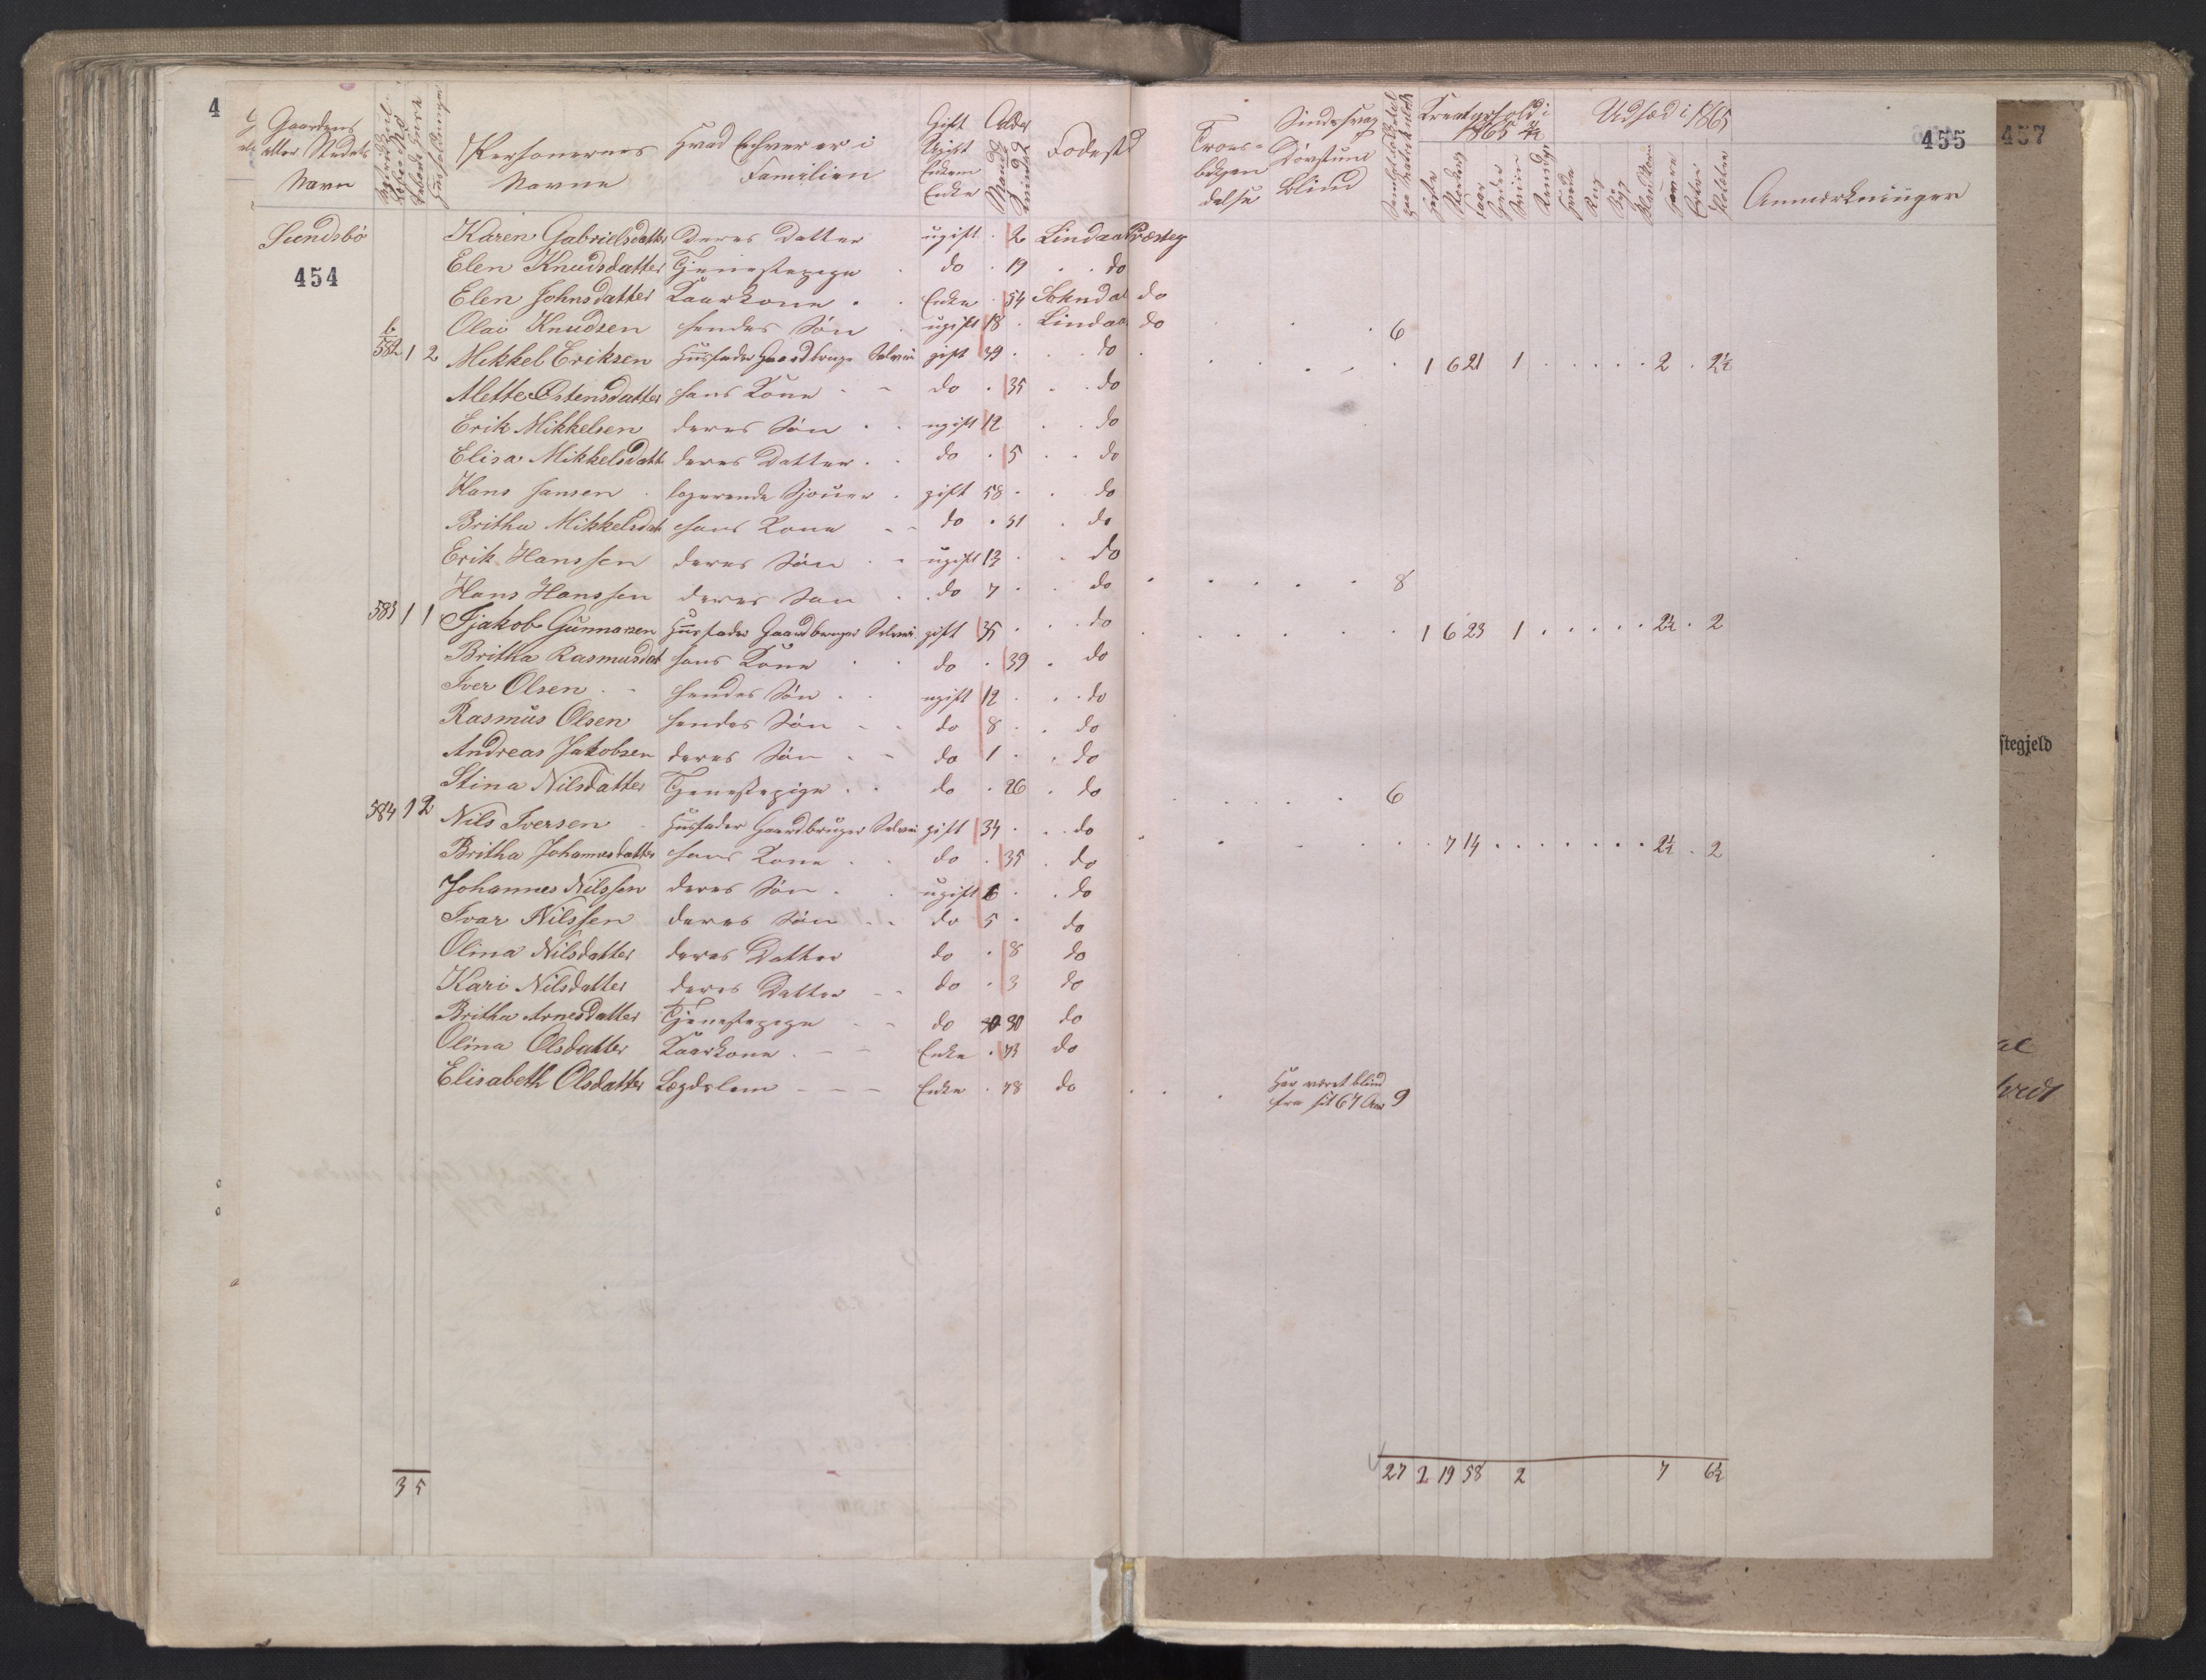 4
Gaardens eller Stedets Navn
Huusholdninger
Personernes Navne
Hvad Enhver er i Familien
Gift Ugift Enkem Enke
Alder
Mandk Kvindek
Fodest
Troes- bekjen delse
Sindssvag Døvstum Blind
Kreaturhold i 1865
Heste
Faar
Geder
Sviin
Rensdyr
Udsæd i 1865
Hvede
Rug
Byg
Havre
Erter
Poteter
Anmærkninger
455
457
Sundsbö
454
Karen Gabrielsdatter Deres Datter ugift . 2 Lindaas Præsteg
Elen Knudsdatter Tjenestepige . do . 19 . . do
Elen Johnsdatter Kaarkone . . Enke . 54 Sokndal do
Olai Knudsen hendes Søn . ugift 18 . Lindaas do 6
b 582 1 2 Mikkel Eriksen Huusfader Gaardbruger Selveier gift 39 . . . do 1 6 21 1 2 2½
Mette Østensdatter hans Kone - - do . 35 . . do
Erik Mikkelsen deres Søn . . ugift 12 . . do
Elisa Mikkelsdatt deres Datter . . do . 5 . . do
Hans Jansen . logerende Sjouer . gift 58 . . do
Britha Mikkelsdat hans Kone - - do . 51 . do
Erik Hanssen deres Søn . - ugift 13 . . do
Hans Hanssen deres Søn . . do 7 . . do 8
583 1 1 Jjakob Gunnarsen Huusfader Gaardbruger Selveier gift 35 . . . do 1 6 23 1 2½ 2
Britha Rasmusdat hans Kone . . do . 39 . do
Iver Olsen . - hendes Søn . . ugift 12 . . . do
Rasmus Olsen hendes Søn - - do 8 . . do
Andreas Jakobsen deres Søn . - do 1 . . do
Stina Nilsdatter Tjenestepige . . do . 26 . do 6
584 1 2 Nils Iversen Huusfader Gaardbruger Selveier gift 34 . . . do 7 14 2½ 2
Britha Johannesdatter hans Kone . . do . 35 . do
Johannes Nilssen deres Søn . . ugift 6 . . do
Ivar Nilssen deres Søn . . do 5 . do
Olina Nilsdatter deres Datter do . 8 do
Kari Nilsdatter deres Datter - - do . 3 do
Britha Arnesdatter Tjenestepige . - do 30 do
Olina Olsdatter Kaarkone . - - Enke . 73 do
Elisabeth Olsdatter Lægdslem - - - Enke . 78 do
Har været blind
fra sit 67 Aar 9
stegjeld
3 5
27 2 19 58 2 7 6½